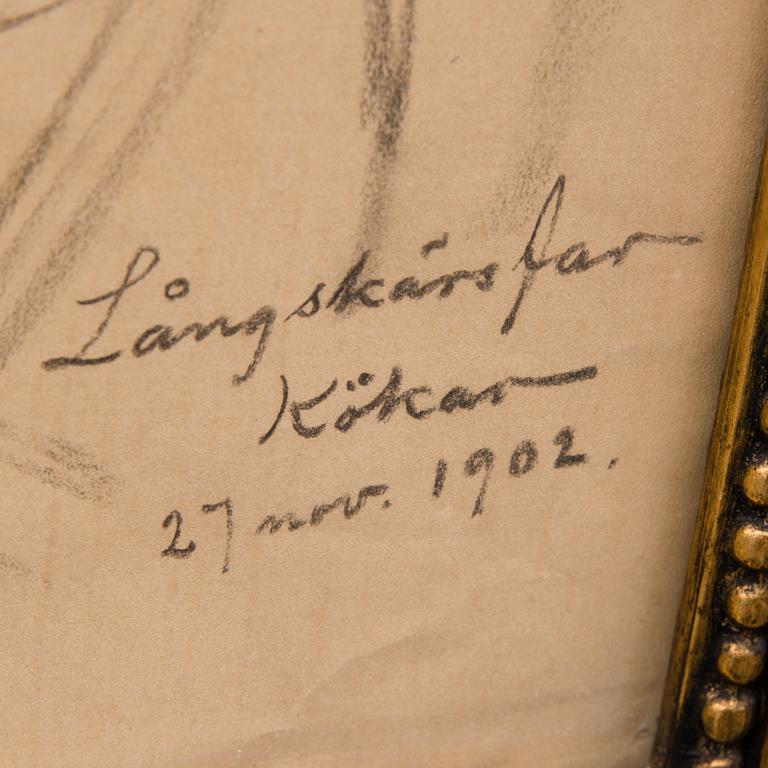 Långskärsfar
Kökar
27 nov. 1902.